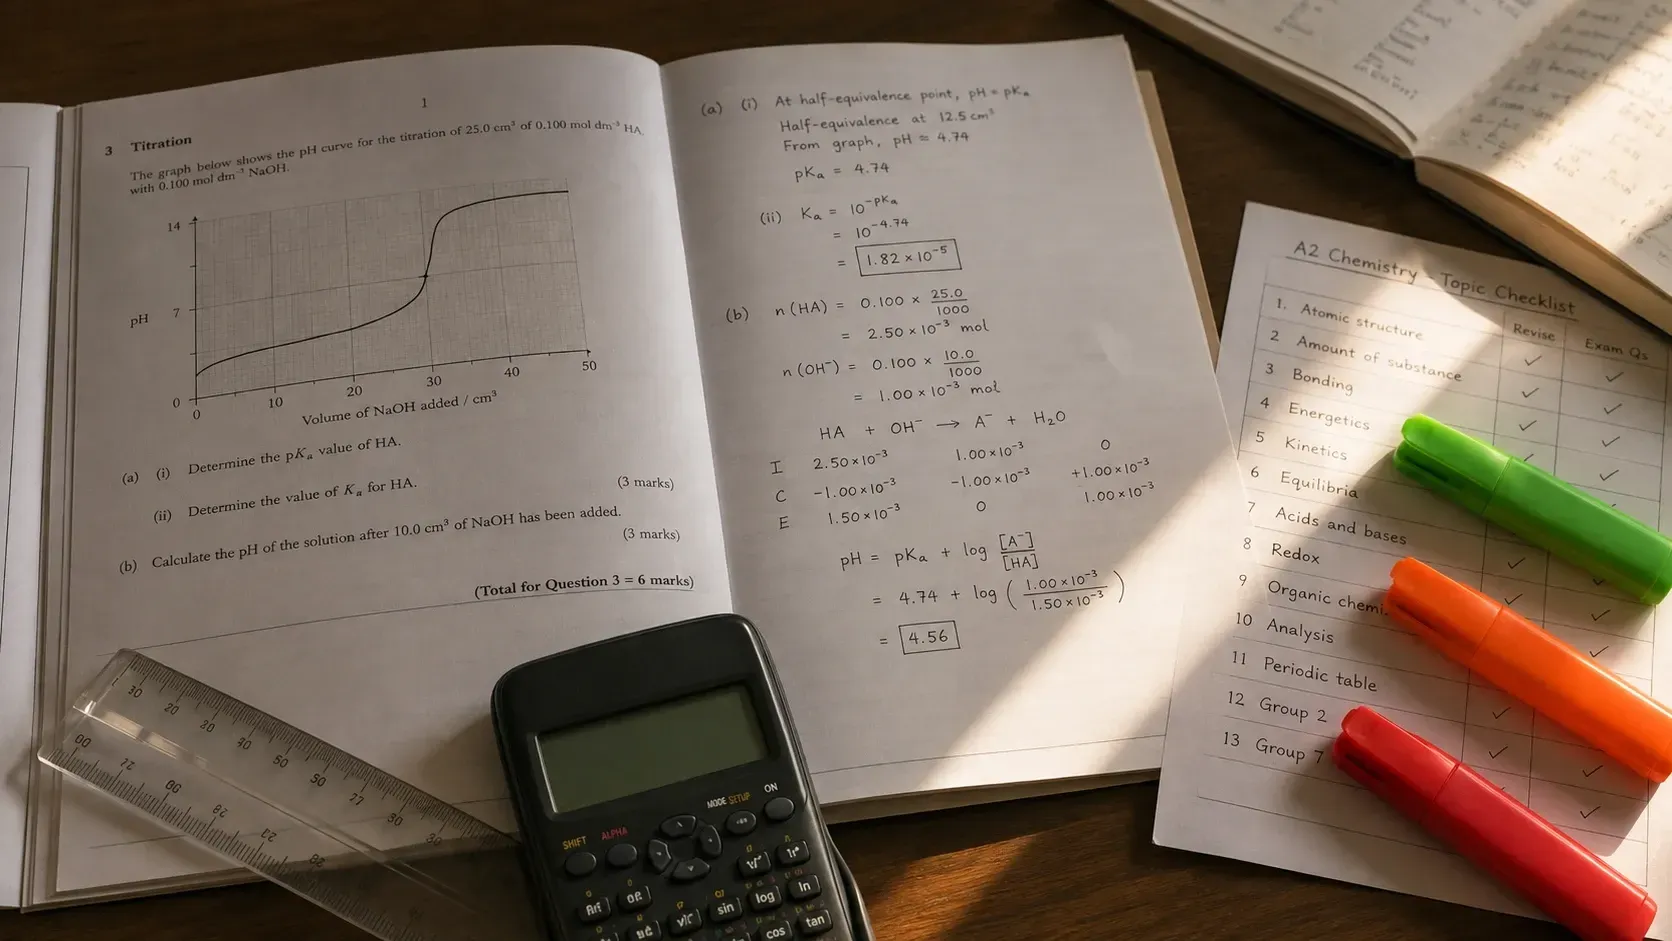 1
3 Titration
The graph below shows the pH curve for the titration of 25.0 cm³ of 0.100 mol dm⁻³ HA
with 0.100 mol dm⁻³ NaOH.
14
7
0
pH
0 10 20 30 40 50
Volume of NaOH added / cm³
(a) (i) Determine the pKₐ value of HA.
(3 marks)
(ii) Determine the value of Kₐ for HA.
(3 marks)
(b) Calculate the pH of the solution after 10.0 cm³ of NaOH has been added.
(Total for Question 3 = 6 marks)
(a) (i) At half-equivalence point, pH = pKₐ
Half-equivalence at 12.5 cm³
From graph, pH ≈ 4.74
pKₐ = 4.74
(ii) Kₐ = 10^-pKₐ
= 10^-4.74
= 1.82 × 10⁻⁵
(b) n(HA) = 0.100 × 25.0/1000
= 2.50 × 10⁻³ mol
n(OH⁻) = 0.100 × 10.0/1000
= 1.00 × 10⁻³ mol
HA + OH⁻ → A⁻ + H₂O
I 2.50×10⁻³ 1.00×10⁻³ 0
C -1.00×10⁻³ -1.00×10⁻³ +1.00×10⁻³
E 1.50×10⁻³ 0 1.00×10⁻³
pH = pKₐ + log [A⁻]/[HA]
= 4.74 + log (1.00×10⁻³/1.50×10⁻³)
= 4.56
A2 Chemistry - Topic Checklist
Revise Exam Qs
1. Atomic structure
2 Amount of substance
3 Bonding
4 Energetics
5 Kinetics
6 Equilibria
7 Acids and bases
8 Redox
9 Organic chemi
10 Analysis
11 Periodic table
12 Group 2
13 Group 7
MODE SETUP ON
SHIFT ALPHA
log ln
sin
cos tan